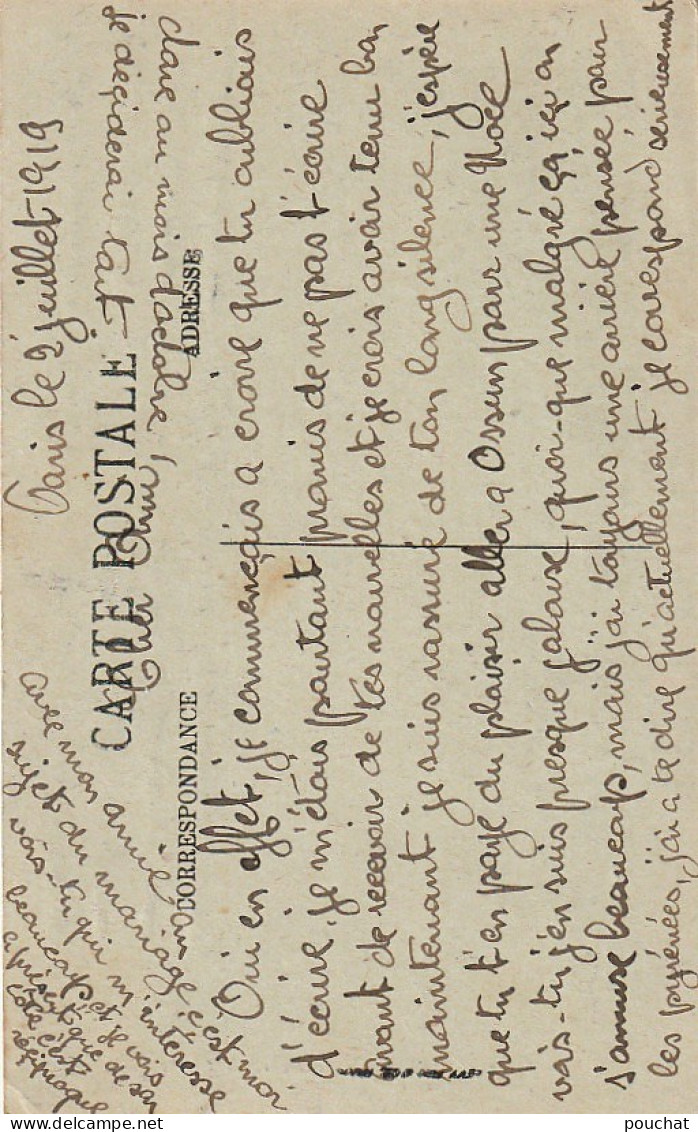 Paris le 2 juillet 1919
CARTE POSTALE
CORRESPONDANCE
ADRESSE
Cher Ami,
Oui en effet, je commençais a croire que tu oubliais
d'écrire, je m'étais pourtant promis de ne pas t'écrire
avant de recevoir de tes nouvelles et je crois avoir tenu bon,
maintenant je suis rassuré de ton long silence, j'espère
que tu t'en paye du plaisir aller a Ossun pour une Noce
vois-tu j'en suis presque jalouse, quoi-que malgré ça, ici on
s'amuse beaucoup, mais j'ai toujours une arrière pensée pour
les pyrénées, j'ai a te dire qu'actuellement je correspond sérieusement
avec mon amie au
sujet du mariage c'est moi
vois-tu qui m'intéresse
beaucoup et je vois
a présent que de son
côté c'est
réciproque
je déciderai tout
dare au mois d'octobre
pouchat